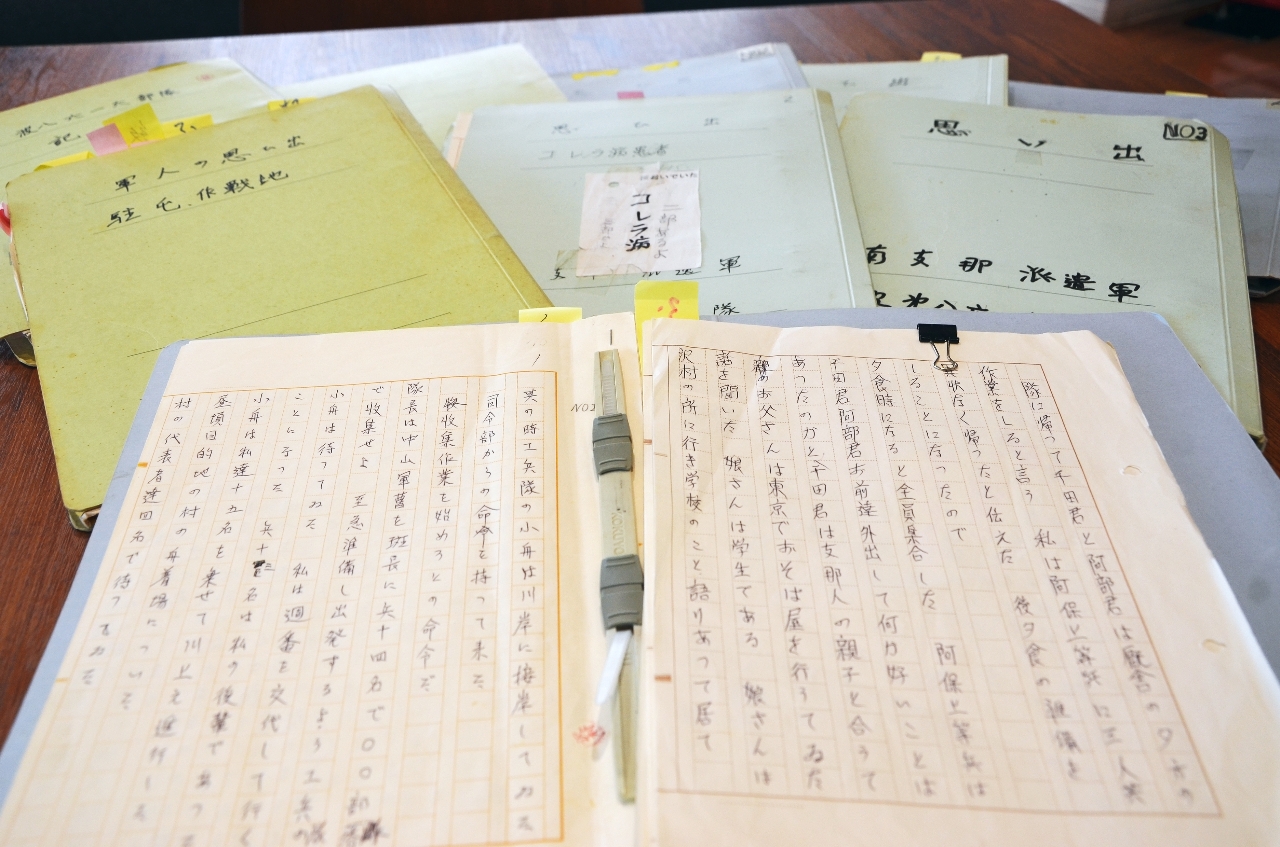 波八六一大部隊
記
軍人の思ひ出
駐屯、作戦地
思ひ出
コレラ病患者
コレラ病
軍
隊
思い出
NO3
南支那派遣軍
隊に帰って千田君と阿部君は厩舎の夕方の
作業をしると言う 私は阿保上等兵に三人異
状なく帰ったと伝えた 後夕食の準備を
しることになったので 阿保上等兵は
夕食時になると全員集合した
千田君阿部君お前達外出して何か好いことは
あったのかと千田君は支那人の親子と合うて
娘のお父さんは東京でおそば屋を行うてゐた
話を聞いた 娘さんは学生である 娘さんは
沢村の所に行き学校のこと語りあって居て
NO1
其の時工兵隊の小舟は川岸に接岸してゐる
司令部からの命令を持って来た
収集作業を始めろとの命令だ
隊長は中山軍曹を班長に兵十四名で〇〇部落
で収集せよ 至急準備し出発するよう工兵の
小舟は待ってゐる 私は週番を交代して行く
ことになった 兵十 名は私の後輩であった
小舟は私達十五名を乗せて川上え進行した
昼頃目的地の村の舟着場についた
村の代表者達四名で待ってゐた